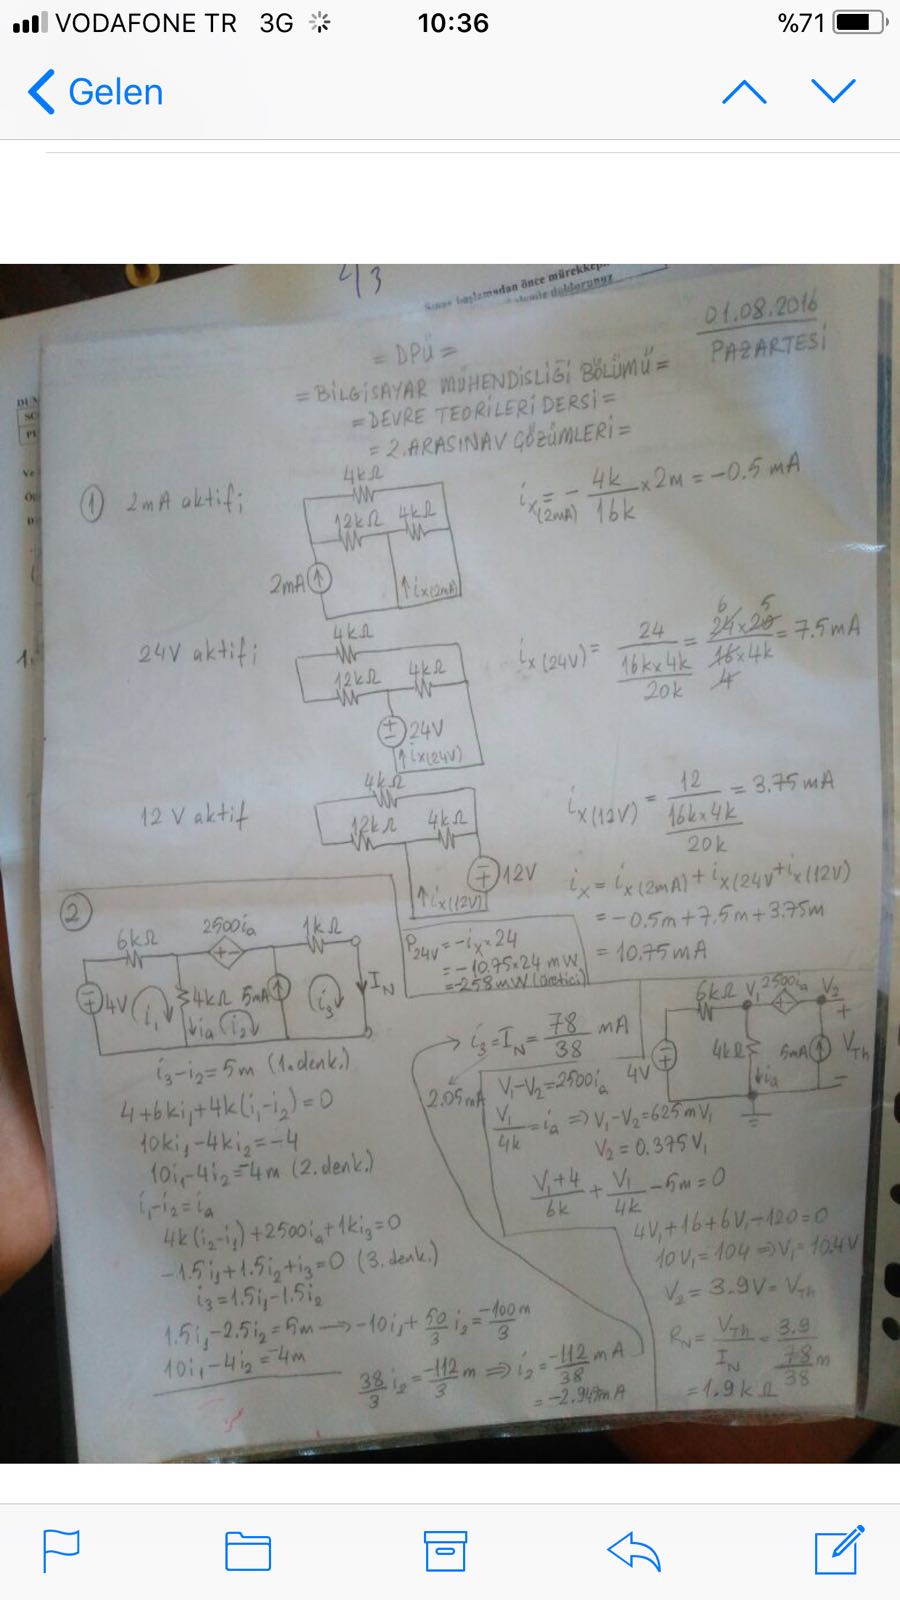 VODAFONE TR 3G 10:36 %71
Gelen
4/3
Sınav başlamadan önce mürekkep
doldurunuz
01.08.2016
PAZARTESİ
= DPÜ =
= BİLGİSAYAR MÜHENDİSLİĞİ BÖLÜMÜ =
= DEVRE TEORİLERİ DERSİ =
= 2. ARASINAV ÇÖZÜMLERİ =
① 2mA aktif;
4kΩ
12kΩ 4kΩ
2mA
↑ix(2mA)
ix(2mA) = - 4k/16k x 2m = -0.5 mA
24V aktif;
4kΩ
12kΩ 4kΩ
24V
↑ix(24V)
ix(24V) = 24/(16k x 4k/20k) = 24 x 20/16 x 4k = 7.5 mA
6 5
4
12 V aktif
4kΩ
12kΩ 4kΩ
12V
↑ix(12V)
ix(12V) = 12/(16k x 4k/20k) = 3.75 mA
ix = ix(2mA) + ix(24V + ix(12V)
= -0.5m + 7.5m + 3.75m
= 10.75 mA
P24V = -ix x 24
= -10.75 x 24 mW
= -258 mW (üretici)
②
6kΩ 2500ia 1kΩ
4V i1 4kΩ 5mA i3 IN
↓ia i2
i3 - i2 = 5m (1. denk.)
4 + 6ki1 + 4k(i1 - i2) = 0
10ki1 - 4ki2 = -4
10i1 - 4i2 = -4m (2. denk.)
i1 - i2 = ia
4k(i2 - i1) + 2500ia + 1ki3 = 0
-1.5i1 + 1.5i2 + i3 = 0 (3. denk.)
i3 = 1.5i1 - 1.5i2
1.5i1 - 2.5i2 = 5m → -10i1 + 50/3 i2 = -100m/3
10i1 - 4i2 = -4m
38/3 i2 = -112/3 m ⇒ i2 = -112/38 mA
= -2.947mA
→ i3 = IN = 78/38 mA
2.05mA
6kΩ V1 2500ia V2
4V 4kΩ 5mA VTh
↓ia
V1 - V2 = 2500ia
V1/4k = ia ⇒ V1 - V2 = 625mV1
V2 = 0.375V1
V1+4/6k + V1/4k - 5m = 0
4V1 + 16 + 6V1 - 120 = 0
10V1 = 104 ⇒ V1 = 10.4V
V2 = 3.9V = VTh
RN = VTh/IN = 3.9/(78/38 m)
= 1.9kΩ